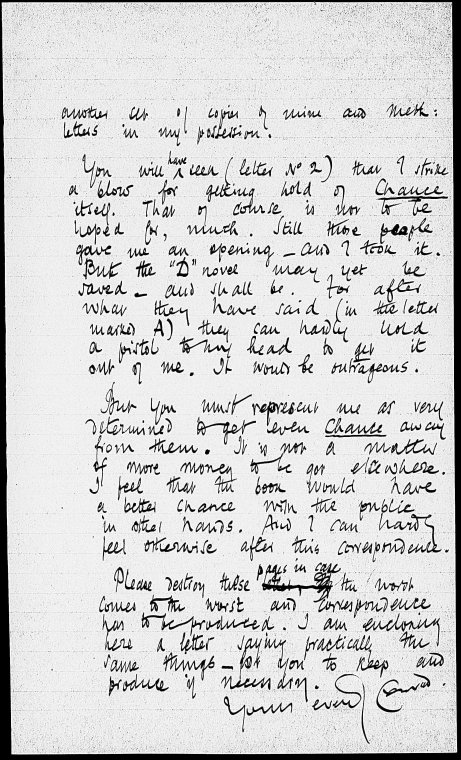 another set of copies of mine and Meth:
letters in my possession.
You will have seen (letter No 2) that I strike
a blow for getting hold of Chance
itself. That of course is not to be
hoped for, much. Still those people
gave me an opening — and I took it.
But the "D" novel may yet be
saved — and shall be. For after
what they have said (in the letter
marked A) they can hardly hold
a pistol to my head to get it
out of me. It would be outrageous.
But you must represent me as very
determined to get even Chance away
from them. It is not a matter
of more money to be got elsewhere.
I feel that the book would have
a better chance with the public
in other hands. And I can hardly
feel otherwise after this correspondence.
Please destroy these pages in case the worst
comes to the worst and correspondence
has to be produced. I am enclosing
here a letter saying practically the
same things — for you to keep and
produce if necessary.
Yours ever Conrad.